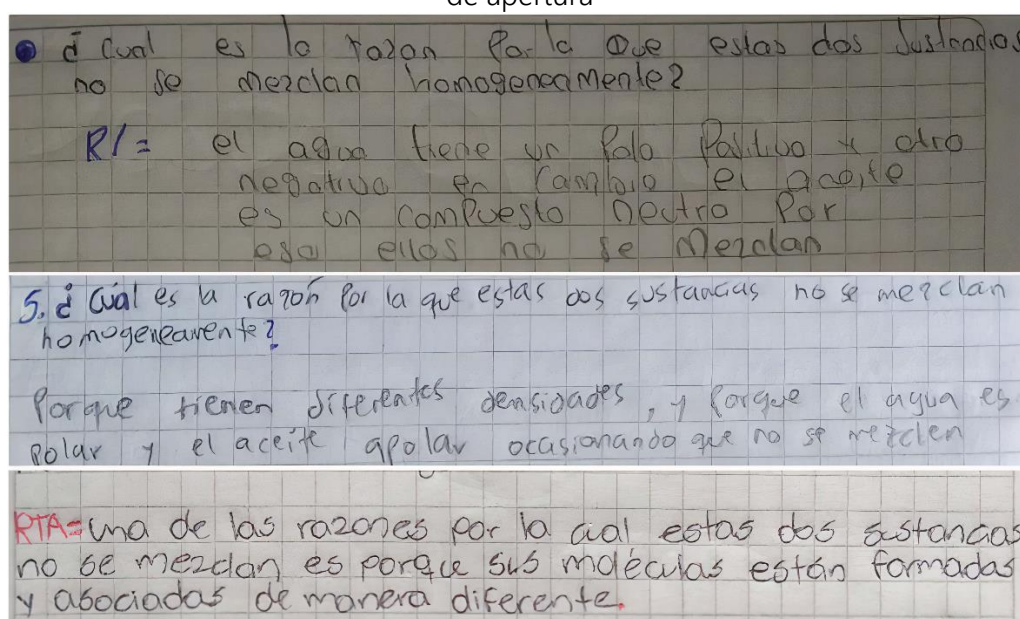 de apertura
¿ Cual es la razon Por la Que estas dos Sustancias
no se mezclan homogeneamente?
R/= el agua tiene un Polo Positivo y otro
negativo en cambio el aceite
es un compuesto neutro Por
eso ellos no se Mezclan
5. ¿ Cuál es la razón por la que estas dos sustancias no se mezclan
homogeneamente?
Porque tienen diferentes densidades, y porque el agua es
polar y el aceite apolar ocasionando que no se mezclen
RTA= una de las razones por la cual estas dos sustancias
no se mezclan es porque sus moléculas están formadas
y asociadas de manera diferente.